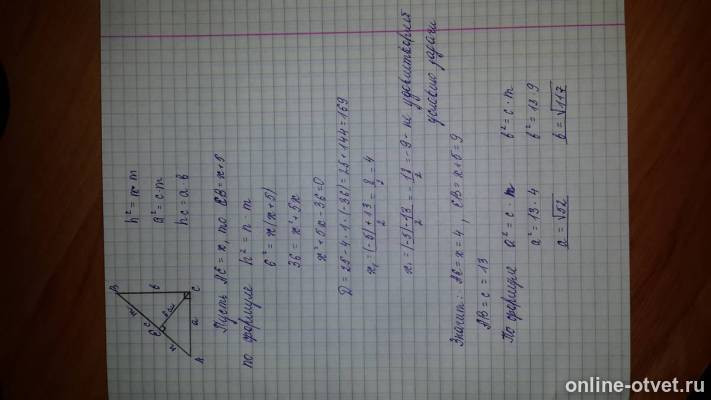 B
n
c
E
в
h
a
C
a
A
h² = n · m
a² = c · m
hc = a b
Пусть AE = x, то EB = x+5
по формуле h² = n · m
6² = x(x+5)
36 = x²+5x
x²+5x-36=0
D = 25-4·1·(-36) = 25+144 = 169
x₁ = (-5)+13/2 = 8/2 = 4
x₁ = (-5)-13/2 = -18/2 = -9 - не удовлетворяет
условию задачи
Значит: AE = x = 4, EB = x+5 = 9
AB = c = 13
По формуле a² = c · m b² = c · m
a² = 13 · 4 b² = 13 · 9
a = √52 b = √117
online-otvet.ru